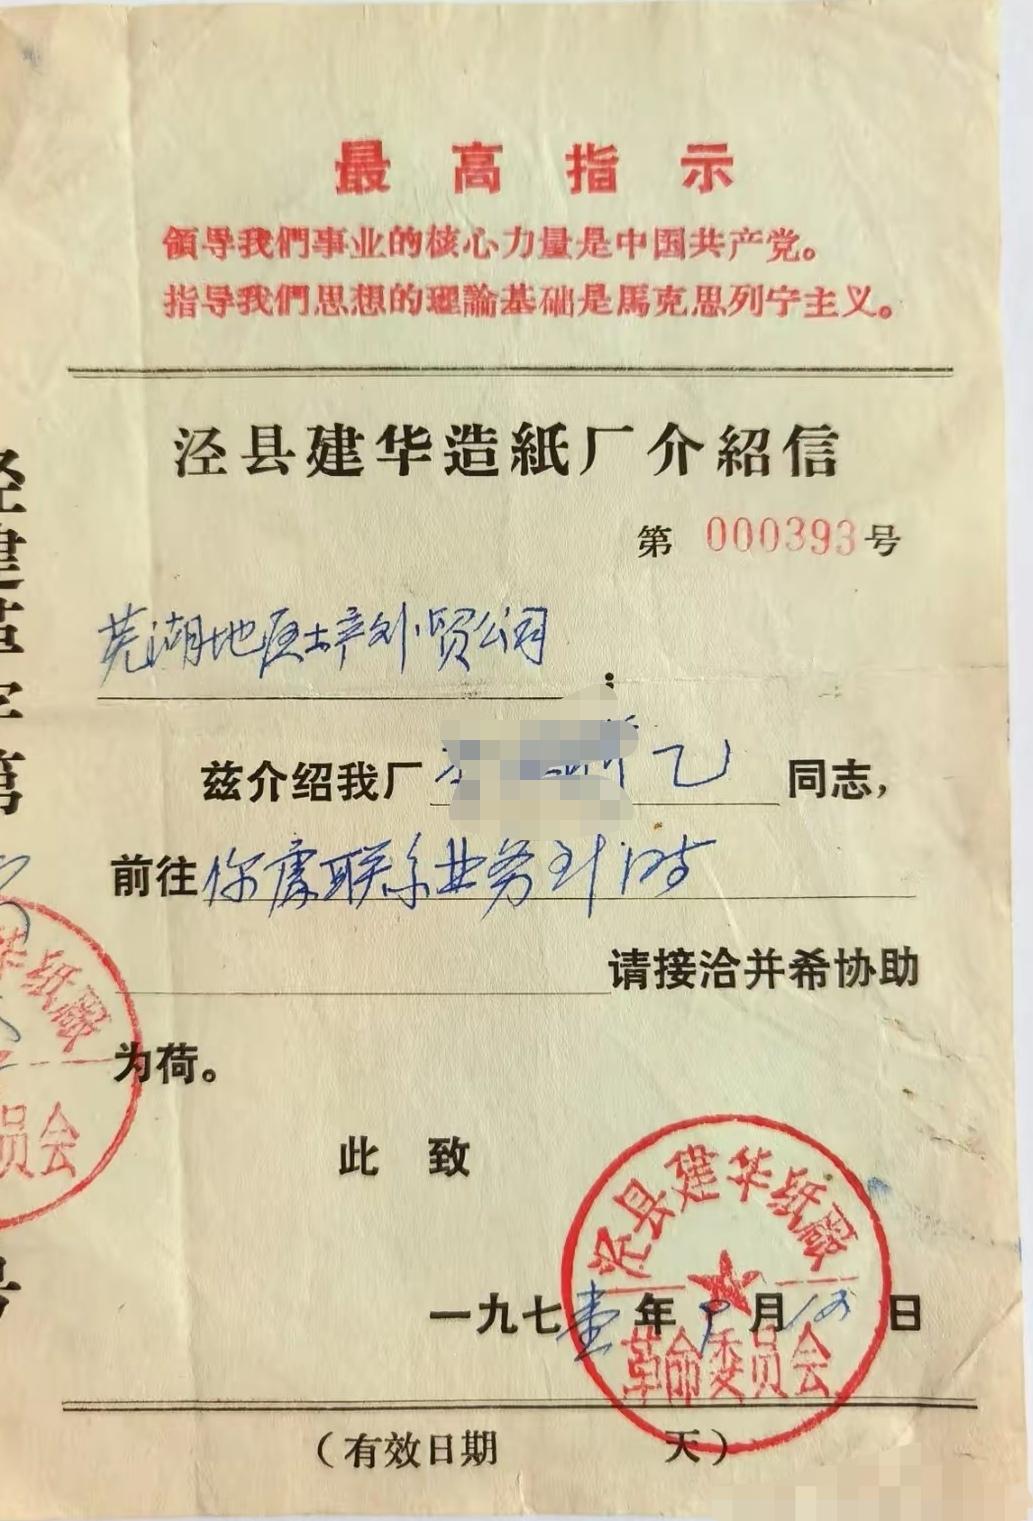 最高指示
領导我們事业的核心力量是中国共产党。
指导我們思想的理論基础是馬克思列宁主义。
泾县建华造紙厂介紹信
第 000393 号
芜湖地区土产外贸公司：
兹介绍我厂 同志，
前往你处联系业务
请接洽并希协助
为荷。
此致
泾县建华纸厂
一九七壹年 月 日
革命委员会
（有效日期 天）
泾建革字第
号
华纸厂
员会